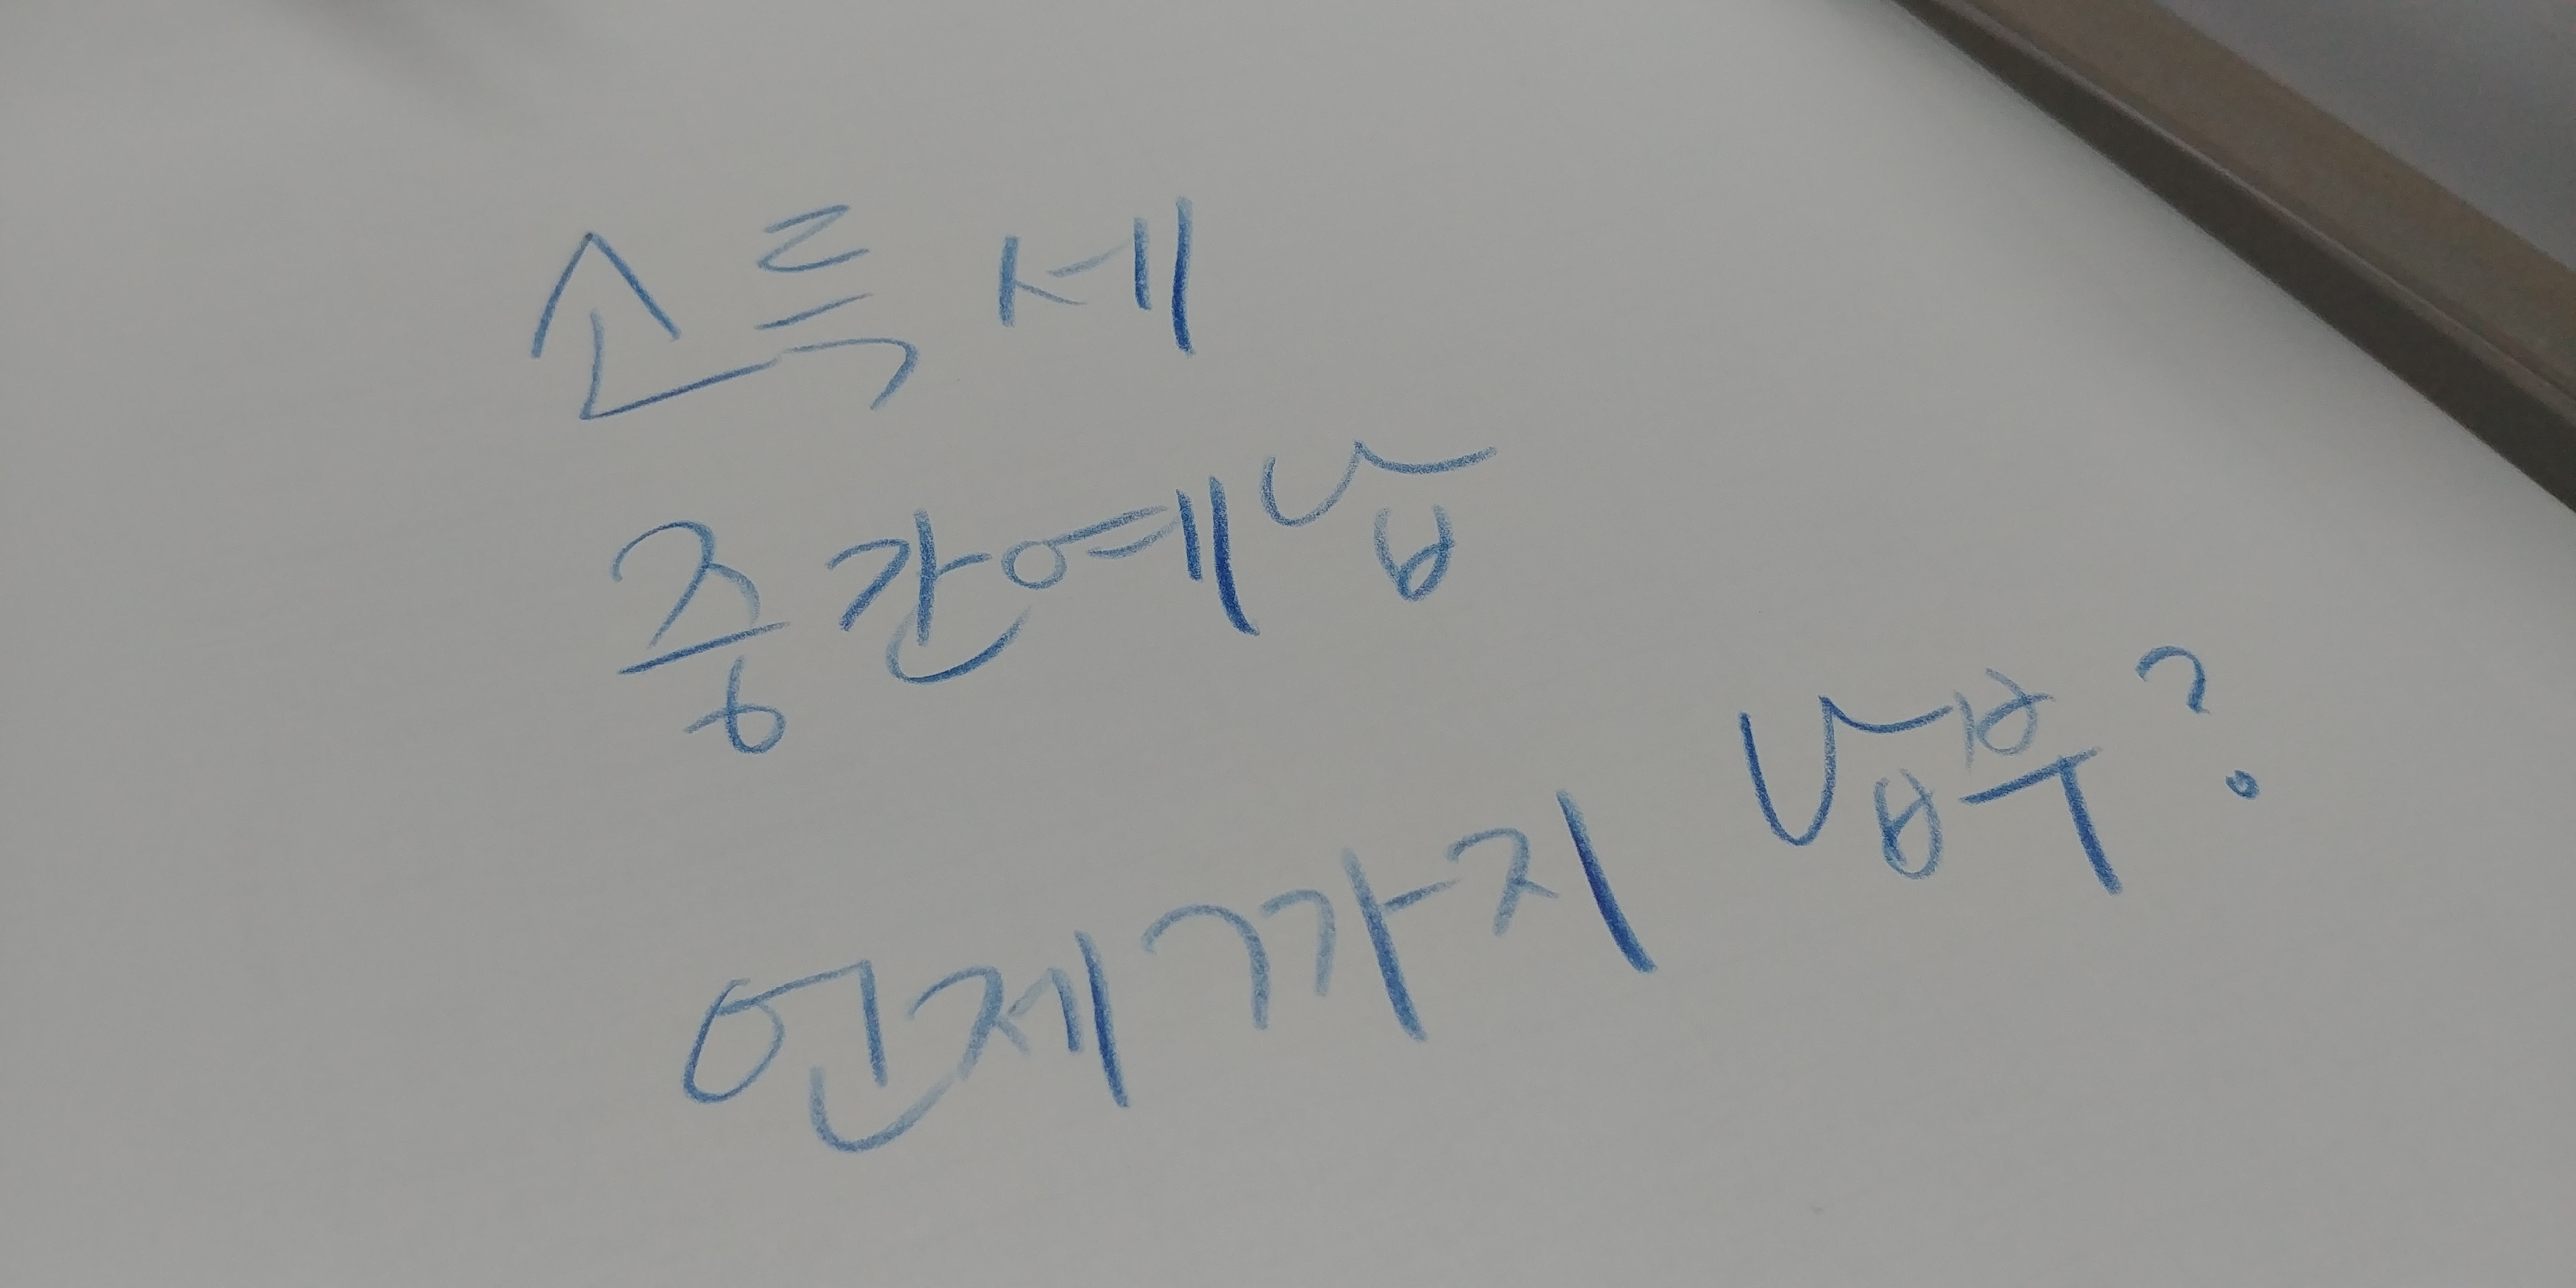 소득세
중간예납
언제까지 납부?